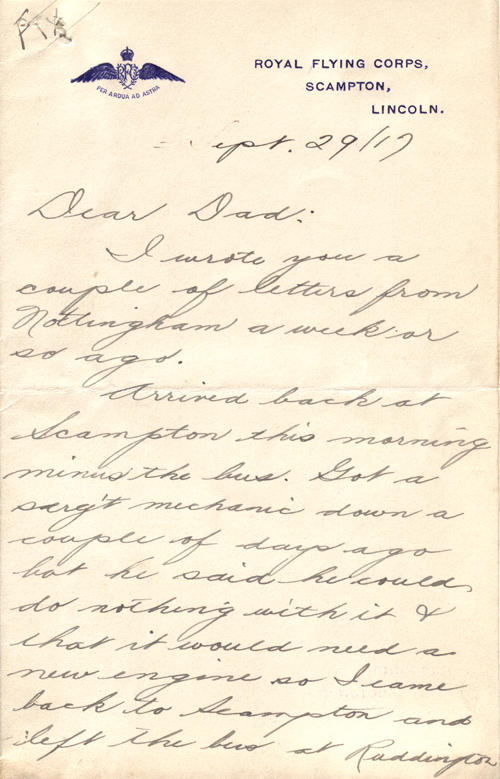 RFC
PER ARDUA AD ASTRA
ROYAL FLYING CORPS,
SCAMPTON,
LINCOLN.
Sept. 29/17
Dear Dad:
I wrote you a
couple of letters from
Nottingham a week or
so ago.
Arrived back at
Scampton this morning
minus the bus. Got a
serg't mechanic down a
couple of days ago
but he said he could
do nothing with it &
that it would need a
new engine so I came
back to Scampton and
left the bus at Ruddington